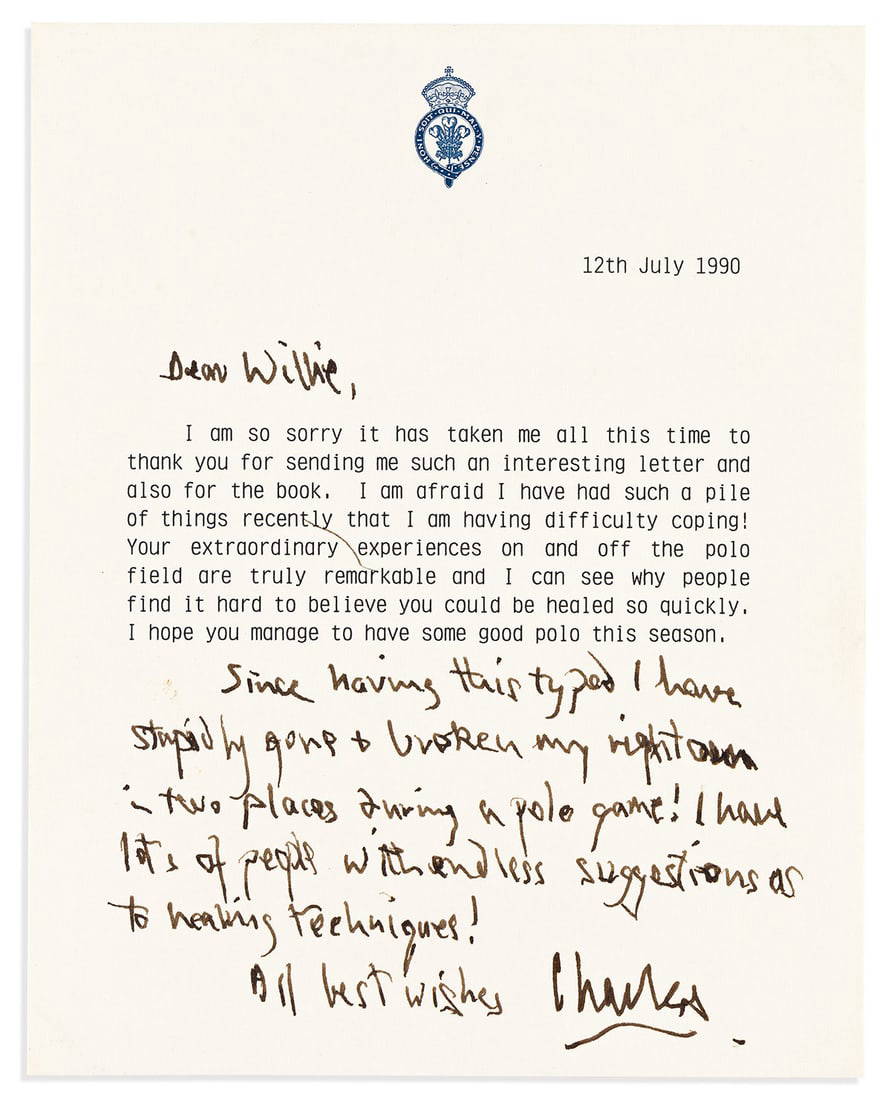 HONI·SOIT·QUI·MAL·Y·PENSE
12th July 1990
Dear Willie,
I am so sorry it has taken me all this time to
thank you for sending me such an interesting letter and
also for the book. I am afraid I have had such a pile
of things recently that I am having difficulty coping!
Your extraordinary experiences on and off the polo
field are truly remarkable and I can see why people
find it hard to believe you could be healed so quickly.
I hope you manage to have some good polo this season.
Since having this typed I have
stupidly gone + broken my right arm
in two places during a polo game! I have
lots of people with endless suggestions as
to healing techniques!
All best wishes Charles